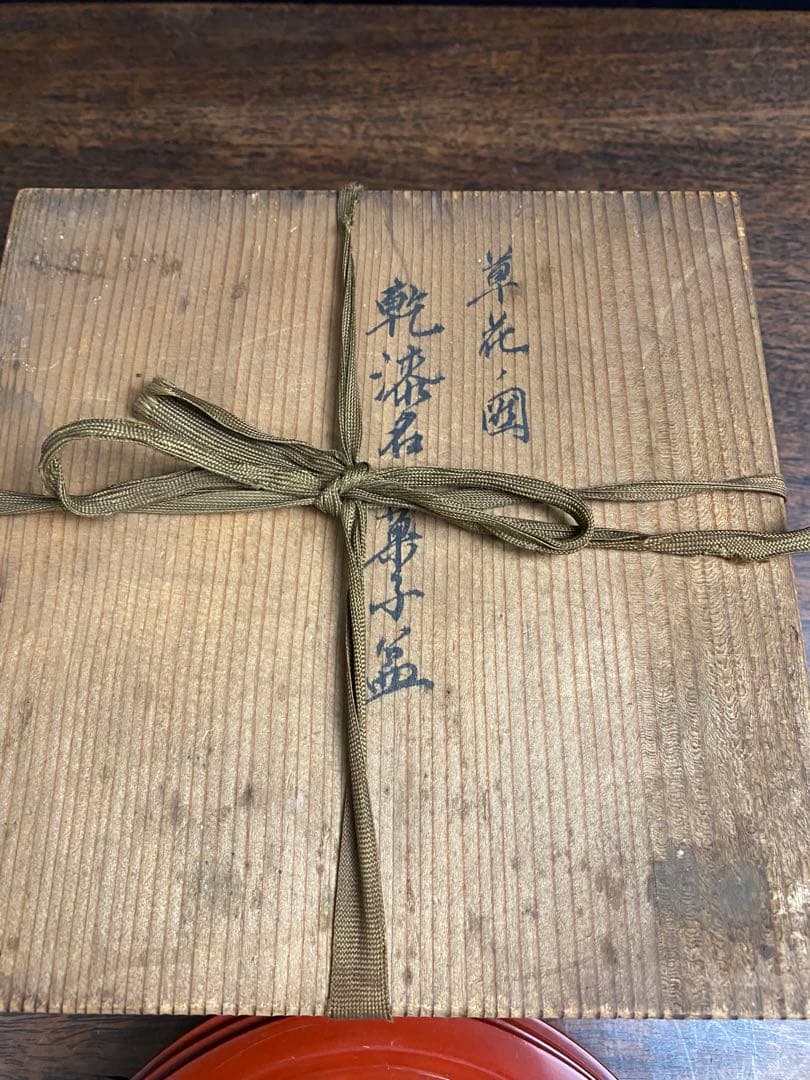 草花ノ圖
乾漆名菓子盆